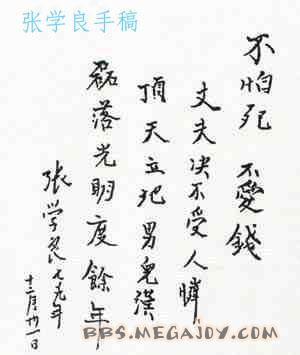 张学良手稿
不怕死 不愛錢
丈夫决不受人憐
頂天立地男兒漢
磊落光明度餘年
張学良
十二月廿一日
BBS.MEGAJOY.COM